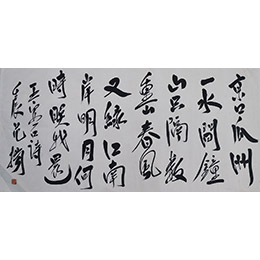 京口瓜洲
一水間鐘
山只隔數
重山春風
又綠江南
岸明月何
時照我還
王安石詩
壬辰